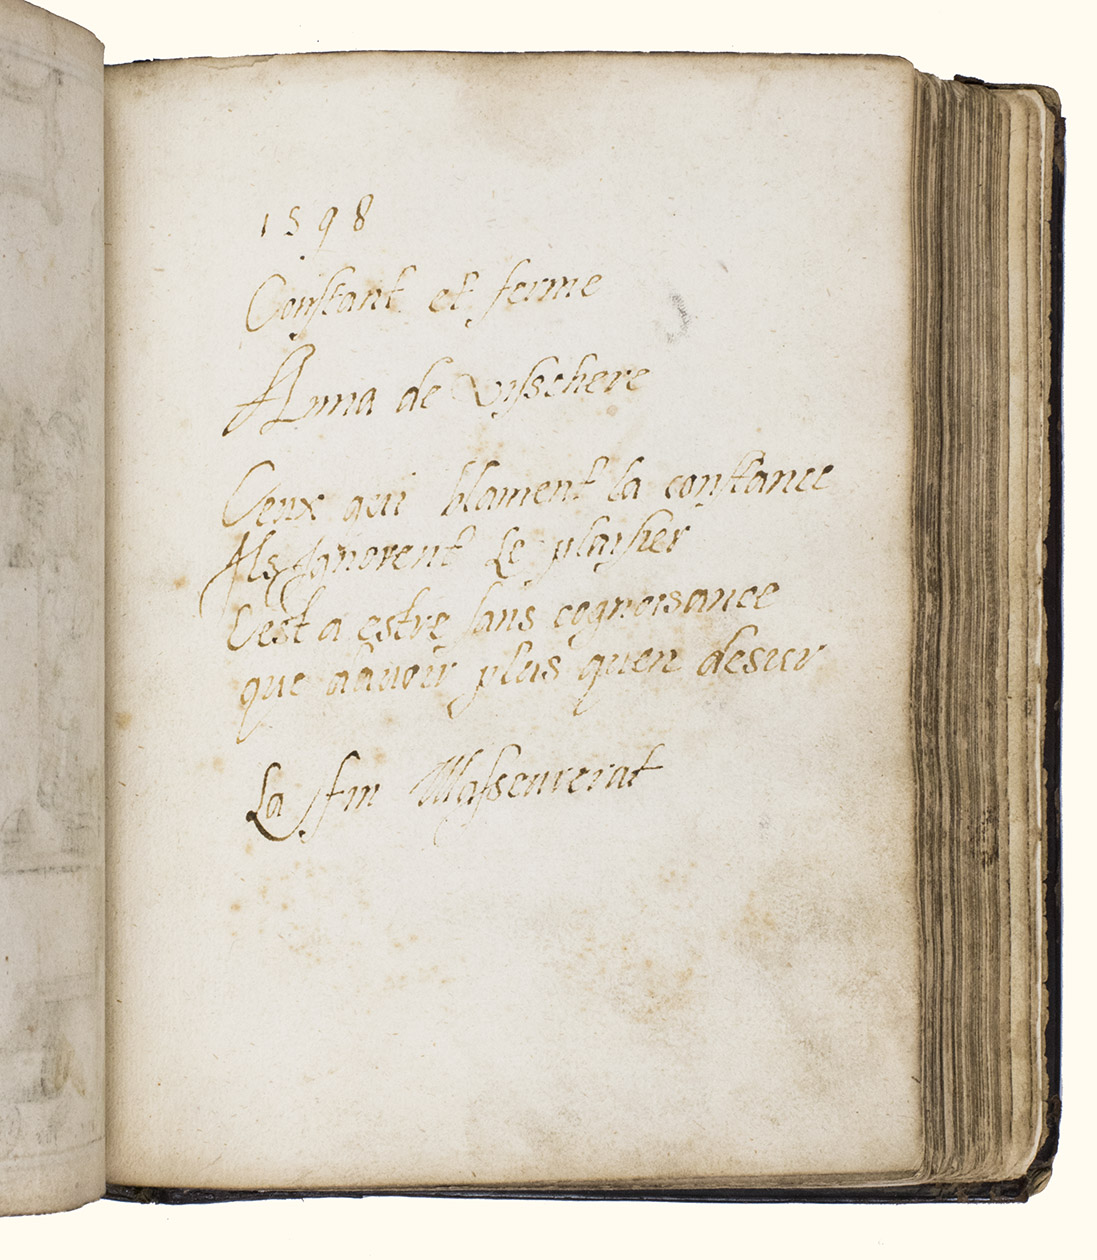 1598
Constant et ferme
Anna de visschere
Ceux qui blament la constance
Ils Ignorent Le plaisier
Cest a estre sans cognoisance
que aavoir plus quen desur
La fin Massenreiat